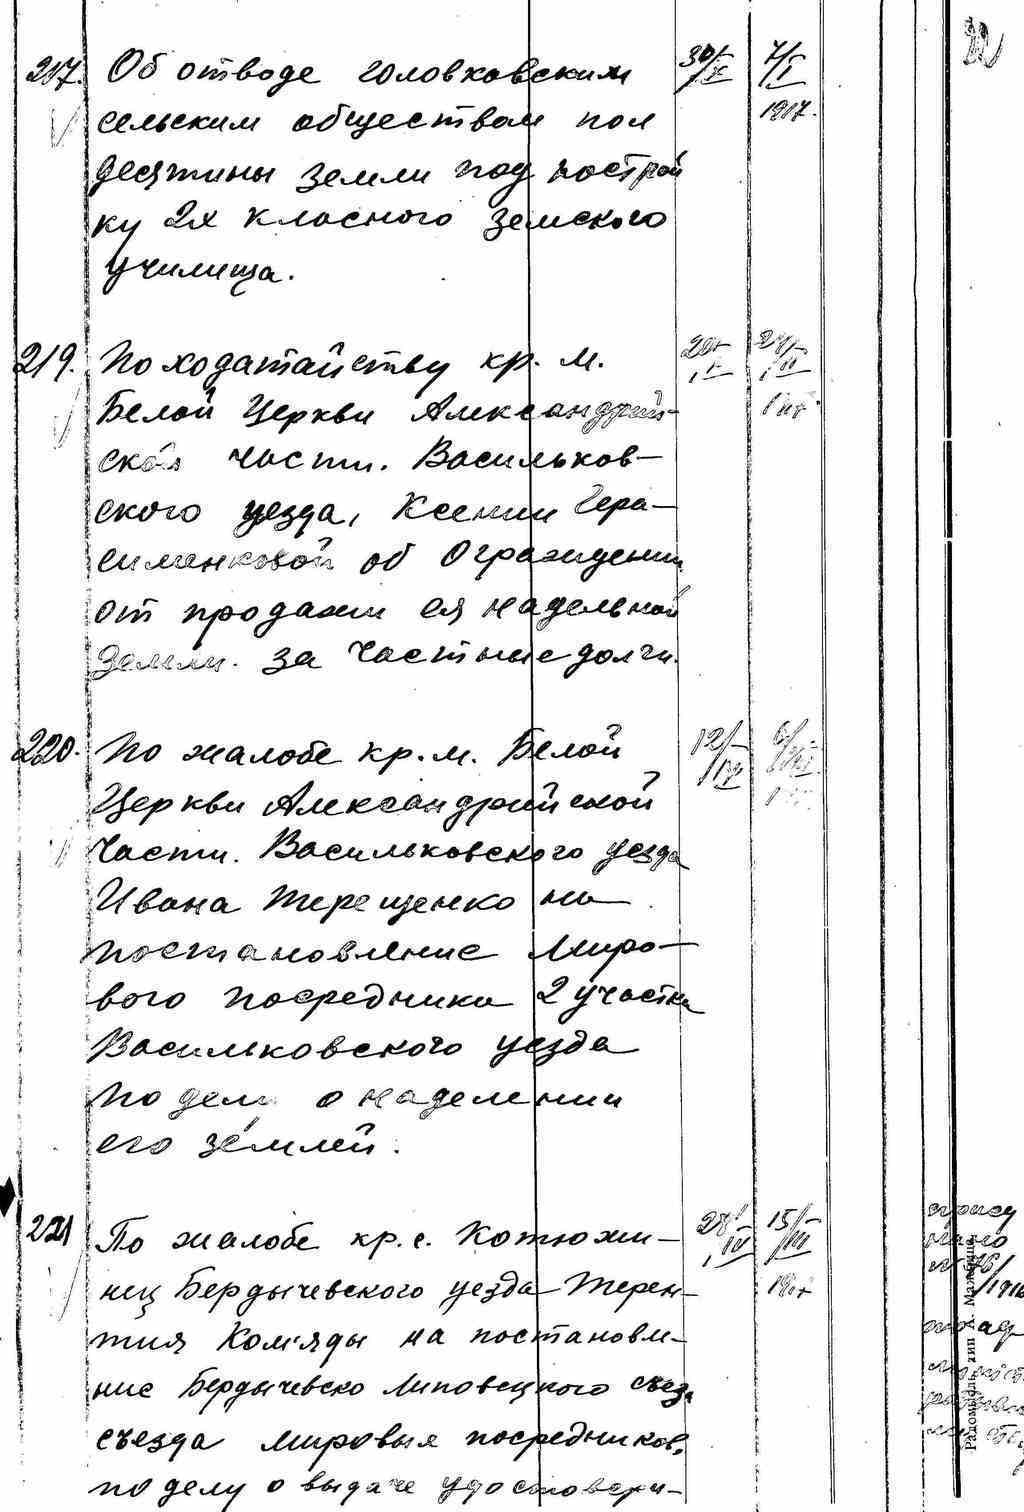 22
217. Об отводе головковским 30/X 7/I
сельским обществом пол 1917.
десятины земли под построй
ку 2х класного земского
училища.
219. По ходатайству кр. м.
Белой Церкви Александрий-
ской части. Васильков-
ского уезда, Ксении Гера-
сименковой об Ограждении
от продажи ея надельной
Земли. за частные долги.
220. По жалобе кр. м. Белой
Церкви Александрийской
части. Васильковского уезда
Ивана Терещенко на
постановление Миро-
вого посредника 2 участка
Васильковского уезда
по делу о наделении
его землей.
221 По жалобе кр. с. Котюжи- 15/III
нец Бердычевского уезда Терен-
тия Коляды на постановле-
ние Бердычевско Липовецкого съез.
съезда мировых посредников,
по делу о выдаче удостовери-
Радомысль, тип. А.